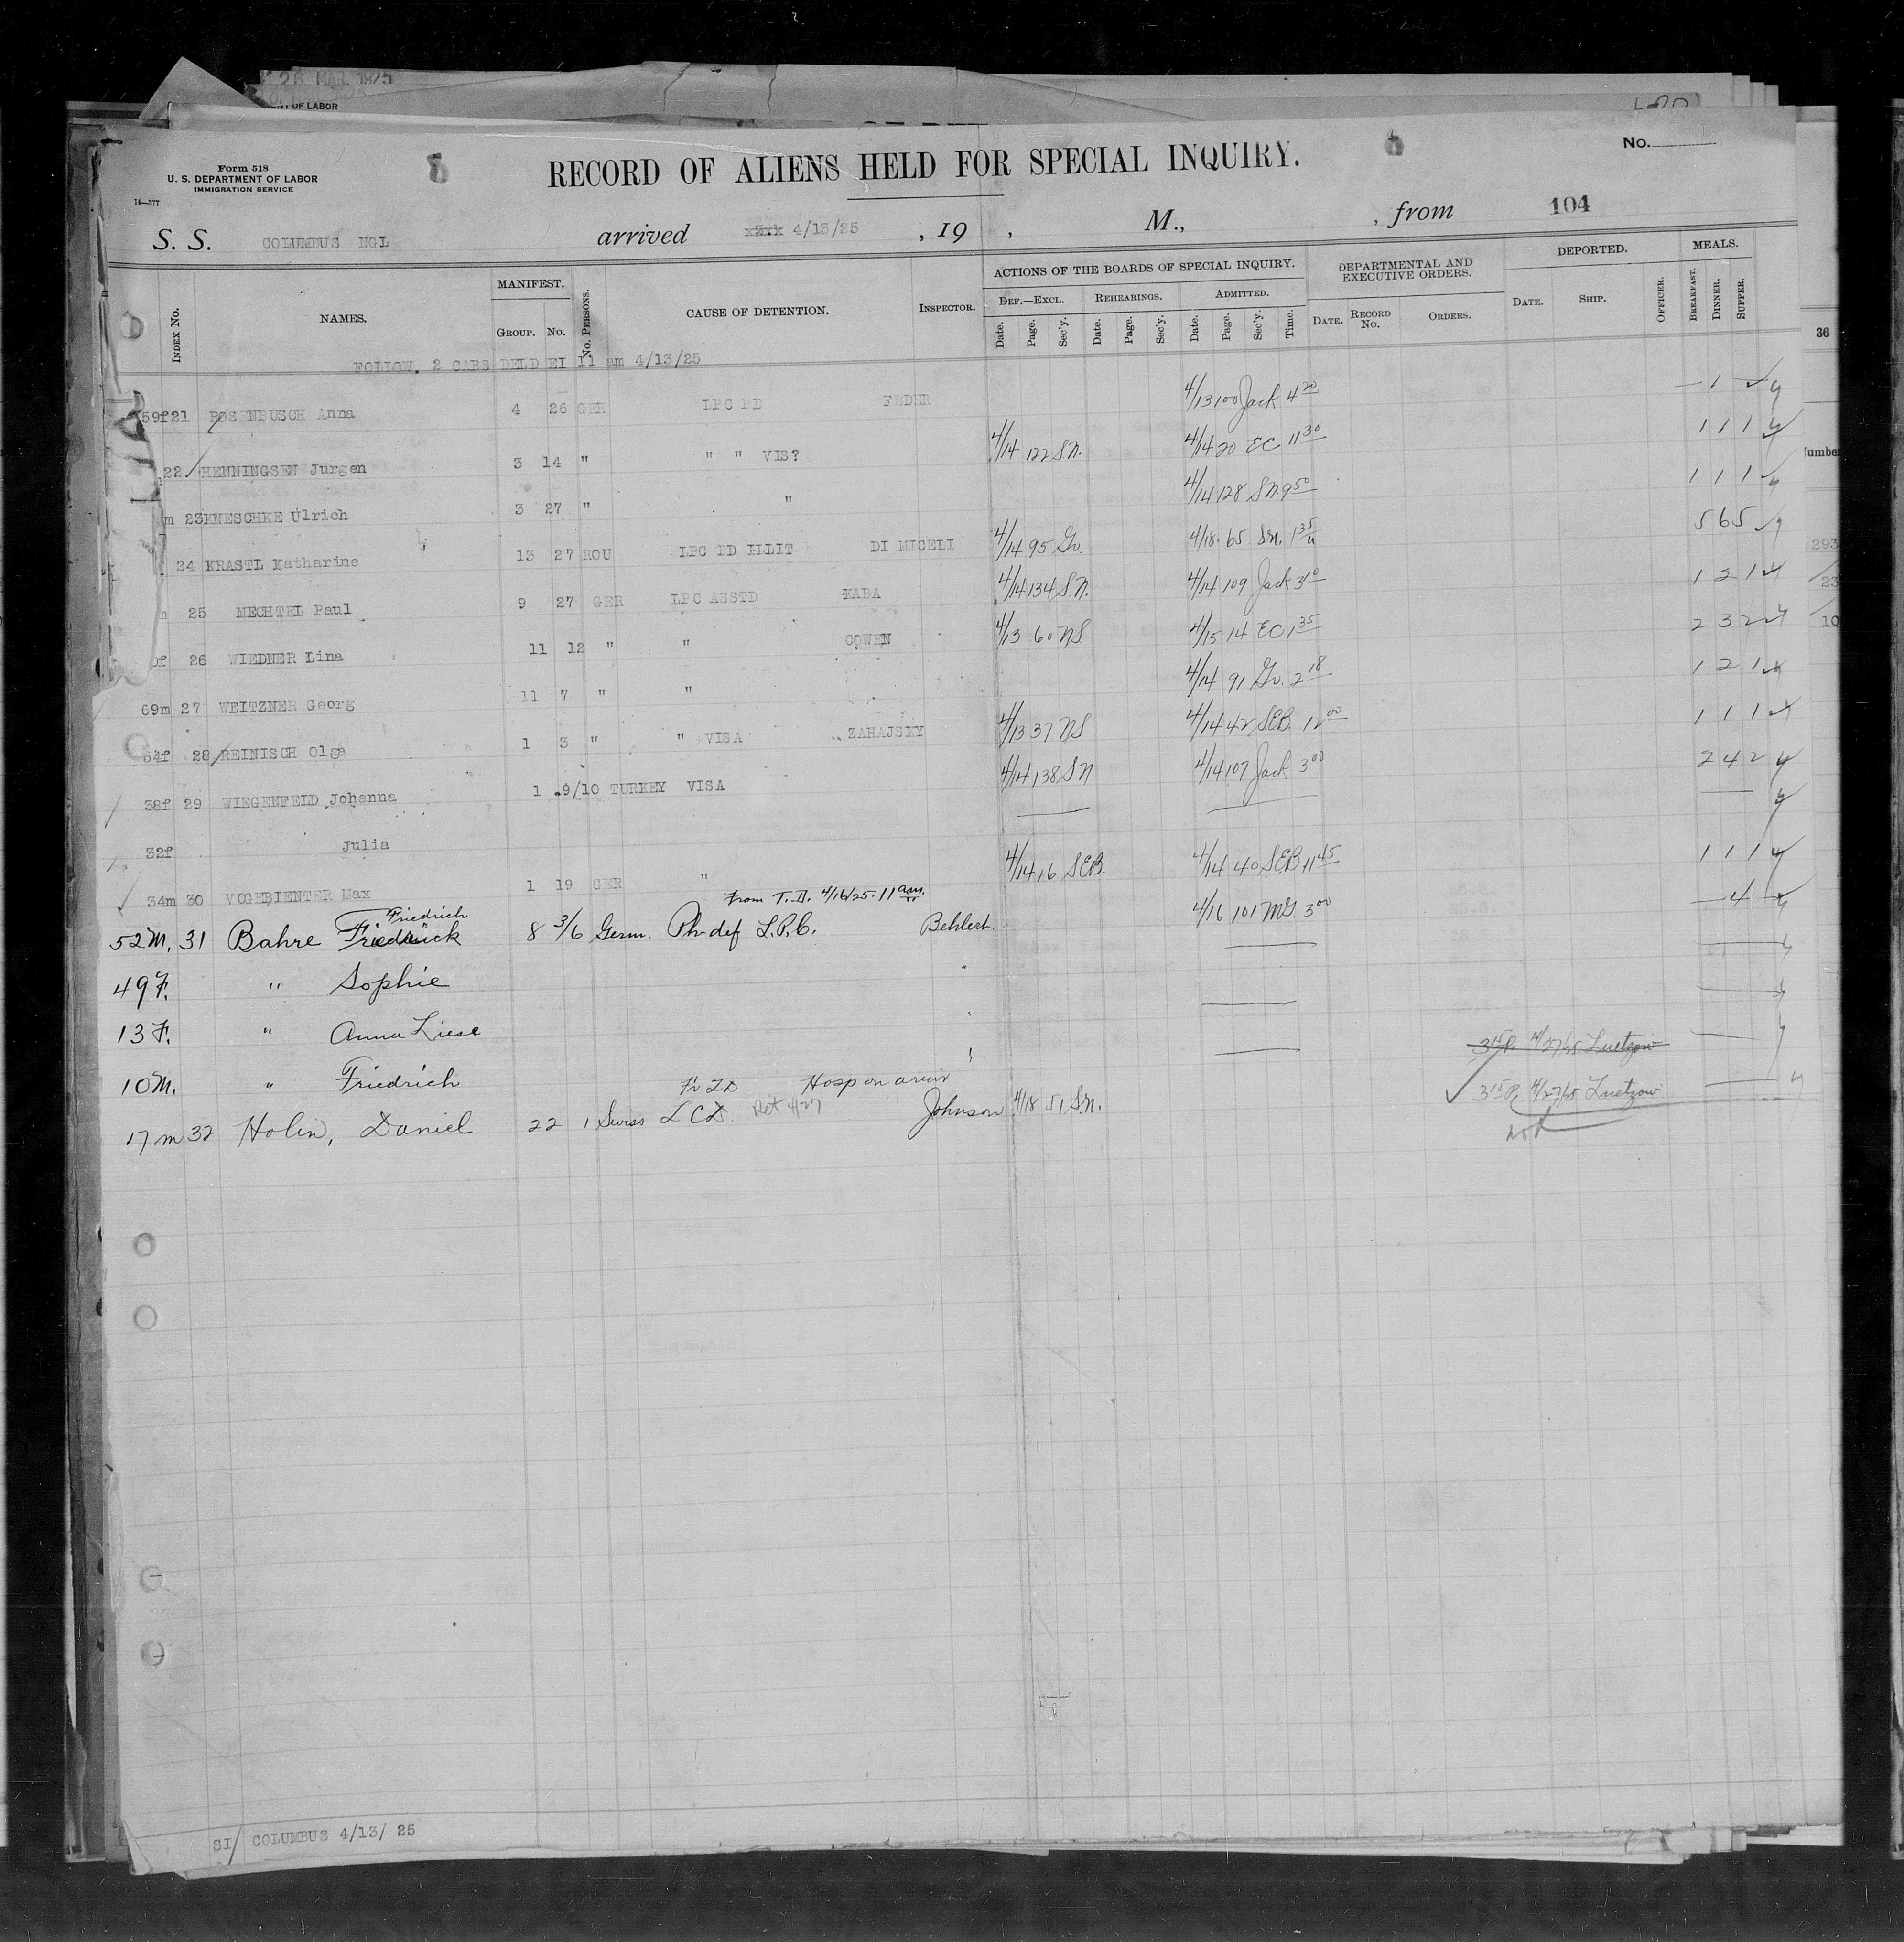 26 MAR. 1925
MENT OF LABOR
Form 518
U. S. DEPARTMENT OF LABOR
IMMIGRATION SERVICE
14—377
8
RECORD OF ALIENS HELD FOR SPECIAL INQUIRY.
No.
S. S. COLUMBUS NGL arrived 4/13/25 , 19 , M., , from 104
INDEX No. NAMES. MANIFEST. GROUP. No. No. PERSONS. CAUSE OF DETENTION. INSPECTOR. ACTIONS OF THE BOARDS OF SPECIAL INQUIRY. DEF.—EXCL. REHEARINGS. ADMITTED. DEPARTMENTAL AND EXECUTIVE ORDERS. DEPORTED. MEALS.
Date. Page. Sec'y. Date. Page. Sec'y. Date. Page. Sec'y. Time. DATE. RECORD No. ORDERS. DATE. SHIP. OFFICER. BREAKFAST. DINNER. SUPPER.
FOLLOW. 2 CABS DELD EI 11 am 4/13/25
59f 21 ROSENBUSCH Anna 4 26 GER LPC PD FEDER 4/13 100 Jack 4 20 — 1 —
22 HENNINGSEN Jurgen 3 14 " " " VIS? 4/14 122 S.N. 4/14 20 EC 11 30 1 1 1
m 23 KNESCHKE Ulrich 3 27 " " 4/14 128 SN 9 50 1 1 1
24 KRASTL Katharine 13 27 ROU LPC PD ILLIT DI MICELI 4/14 95 Gr. 4/18 65 Sn. 1 35 5 6 5
25 MECHTEL Paul 9 27 GER LPC ASSTD KABA 4/14 134 S.N. 4/14 109 Jack 3 10 1 2 1
f 26 WIEDNER Lina 11 12 " " COWEN 4/13 60 NS 4/15 14 EC 1 35 2 3 2
69m 27 WEITZNER Georg 11 7 " " 4/14 91 Gr. 2 18 1 2 1
54f 28 REINISCH Olga 1 3 " " VISA ZAHAJSKY 4/13 37 NS 4/14 42 SEB. 12 00 1 1 1
38f 29 WIEGENFELD Johanna 1 9/10 TURKEY VISA 4/14 138 SN 4/14 107 Jack 3 00 2 4 2
32f Julia
34m 30 VOGEBIENTER Max 1 19 GER " 4/14 16 SEB. 4/14 40 SEB 11 45 1 1 1
From T.D. 4/16/25 - 11 am.
Friedrich
52 M. 31 Bahre Friedrick 8 3/6 Germ. Ph. def L.P.C. Behlert. 4/16 101 MG. 3 00 — 4 —
49 F. " Sophie "
13 F. " Anna Liese
10 M. " Friedrich 315 P. 4/27/25 Luetzow
Fr TD Hosp on arriv
17 m 32 Holin, Daniel 22 1 Swiss LCD. Ret 4/27 Johnson 4/18 51 S.N. 315 P. 4/27/25 Luetzow
36
293
23
10
SI/ COLUMBUS 4/13/ 25